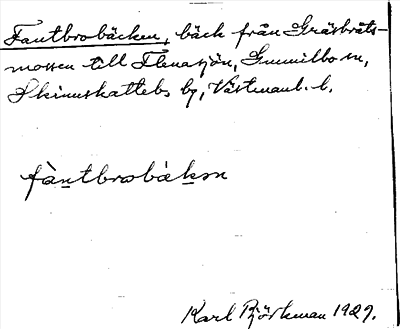 Fantbrobäcken, bäck från Gräsbråts-
mossen till Flenasjön, Gunnilbo sn,
Skinnskattebs bg, Västmanl. l.
fàntbrobàkən
Karl Björkman 1929.